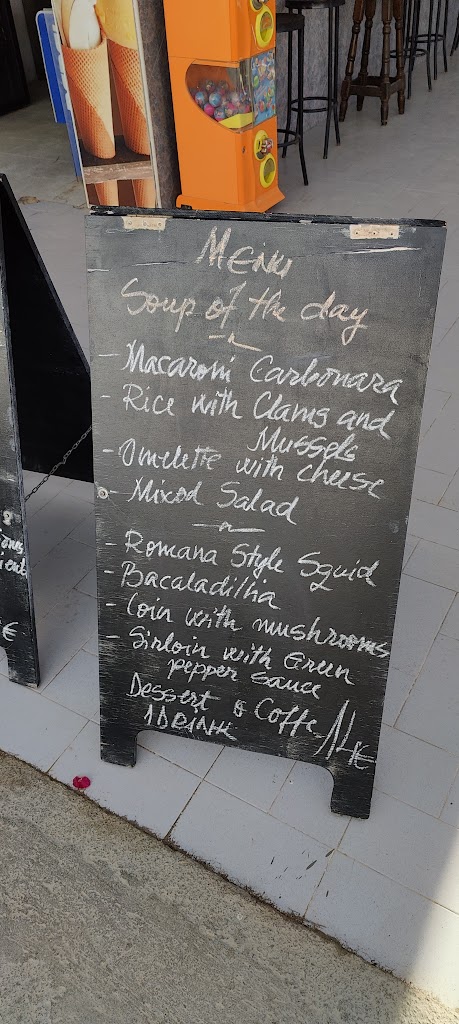 Menu
Soup of the day
- Macaroni Carbonara
- Rice with Clams and
Mussels
- Omelette with cheese
- Mixed Salad
- Romana Style Squid
- Bacaladilha
- Loin with mushrooms
- Sirloin with Green
pepper Sauce
Dessert o Coffe
1 DRINK
14€